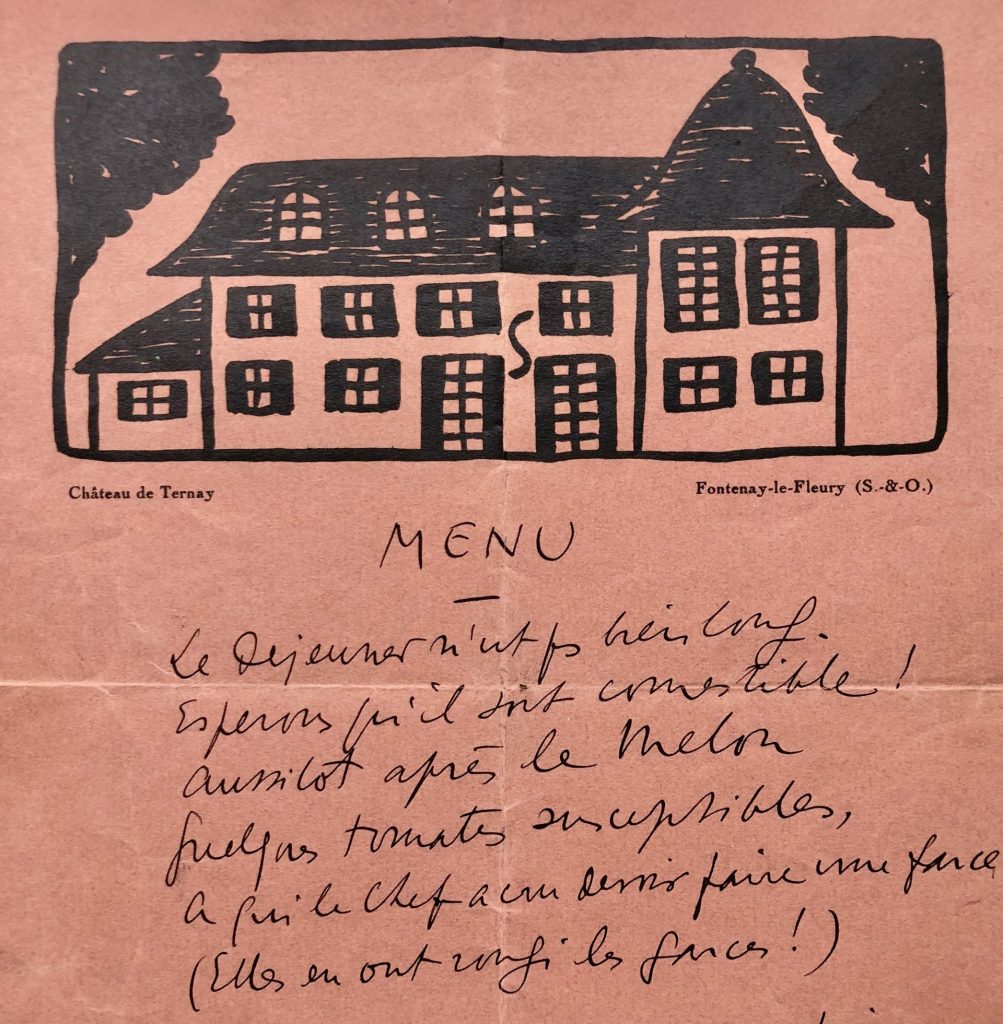 S
Château de Ternay
Fontenay-le-Fleury (S.-&-O.)
MENU
Le Déjeuner n'est ps bien long.
Esperons qu'il soit comestible!
Aussitôt après le Melon
Quelques tomates susceptibles,
A qui le Chef a cru devoir faire une farce
(Elles en ont rougi les garces!)